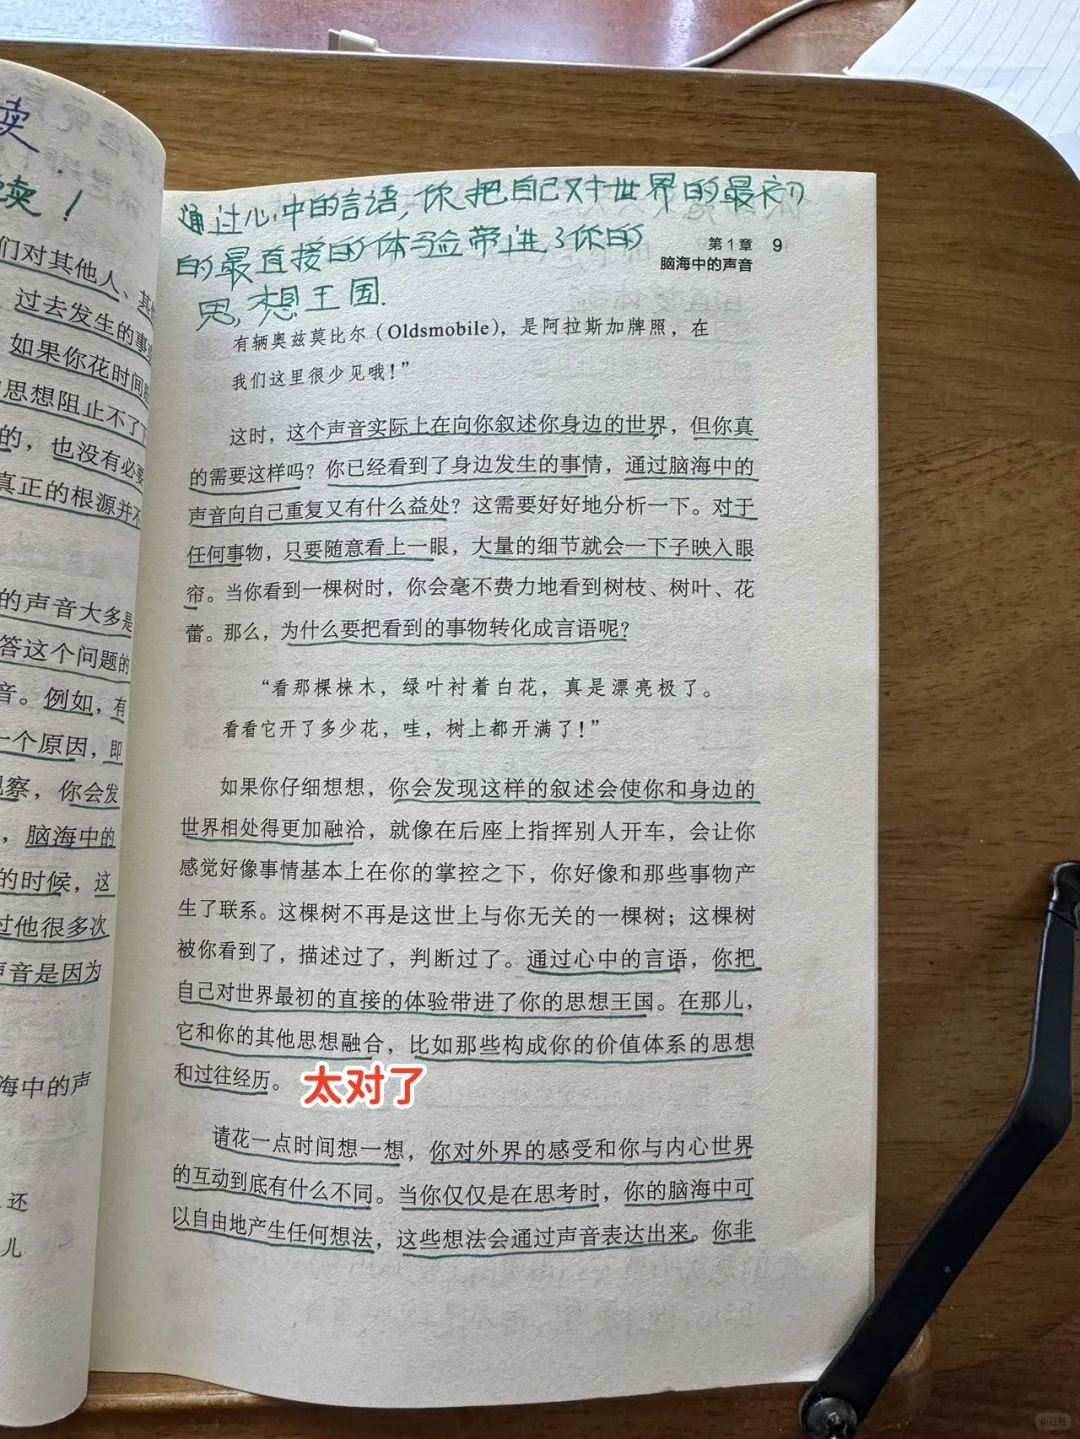 读
读！
们对其他人、其
过去发生的事
如果你花时间
思想阻止不了
的，也没有必要
真正的根源并不
的声音大多是
答这个问题的
音。例如，有
一个原因，即
观察，你会发
，脑海中的
的时候，这
过他很多次
声音是因为
海中的声
还
儿
通过心中的言语，你把自己对世界的最初
的最直接的体验带进了你的
思想王国.
第1章 9
脑海中的声音
有辆奥兹莫比尔（Oldsmobile），是阿拉斯加牌照，在
我们这里很少见哦！”
这时，这个声音实际上在向你叙述你身边的世界，但你真
的需要这样吗？你已经看到了身边发生的事情，通过脑海中的
声音向自己重复又有什么益处？这需要好好地分析一下。对于
任何事物，只要随意看上一眼，大量的细节就会一下子映入眼
帘。当你看到一棵树时，你会毫不费力地看到树枝、树叶、花
蕾。那么，为什么要把看到的事物转化成言语呢？
“看那棵梾木，绿叶衬着白花，真是漂亮极了。
看看它开了多少花，哇，树上都开满了！”
如果你仔细想想，你会发现这样的叙述会使你和身边的
世界相处得更加融洽，就像在后座上指挥别人开车，会让你
感觉好像事情基本上在你的掌控之下，你好像和那些事物产
生了联系。这棵树不再是这世上与你无关的一棵树；这棵树
被你看到了，描述过了，判断过了。通过心中的言语，你把
自己对世界最初的直接的体验带进了你的思想王国。在那儿，
它和你的其他思想融合，比如那些构成你的价值体系的思想
和过往经历。 太对了
请花一点时间想一想，你对外界的感受和你与内心世界
的互动到底有什么不同。当你仅仅是在思考时，你的脑海中可
以自由地产生任何想法，这些想法会通过声音表达出来。你非
小红书